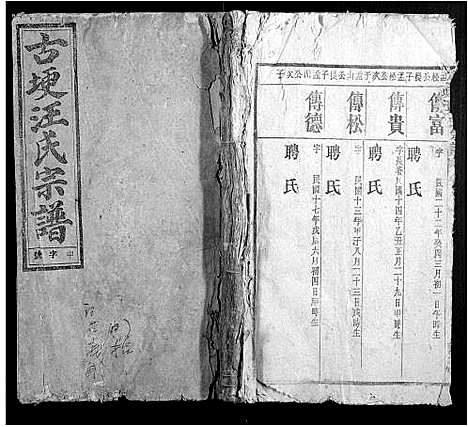 古埂汪氏宗譜
字號
傳富
字
民國二十二年癸酉三月初一日午時生
聘氏
傳貴
字長春民國十四年乙丑正月二十九日申時生
聘氏
傳松
字
民國十三年甲子八月二十三日戌時生
聘氏
傳德
字
民國十七年戊辰六月初四日申時生
聘氏